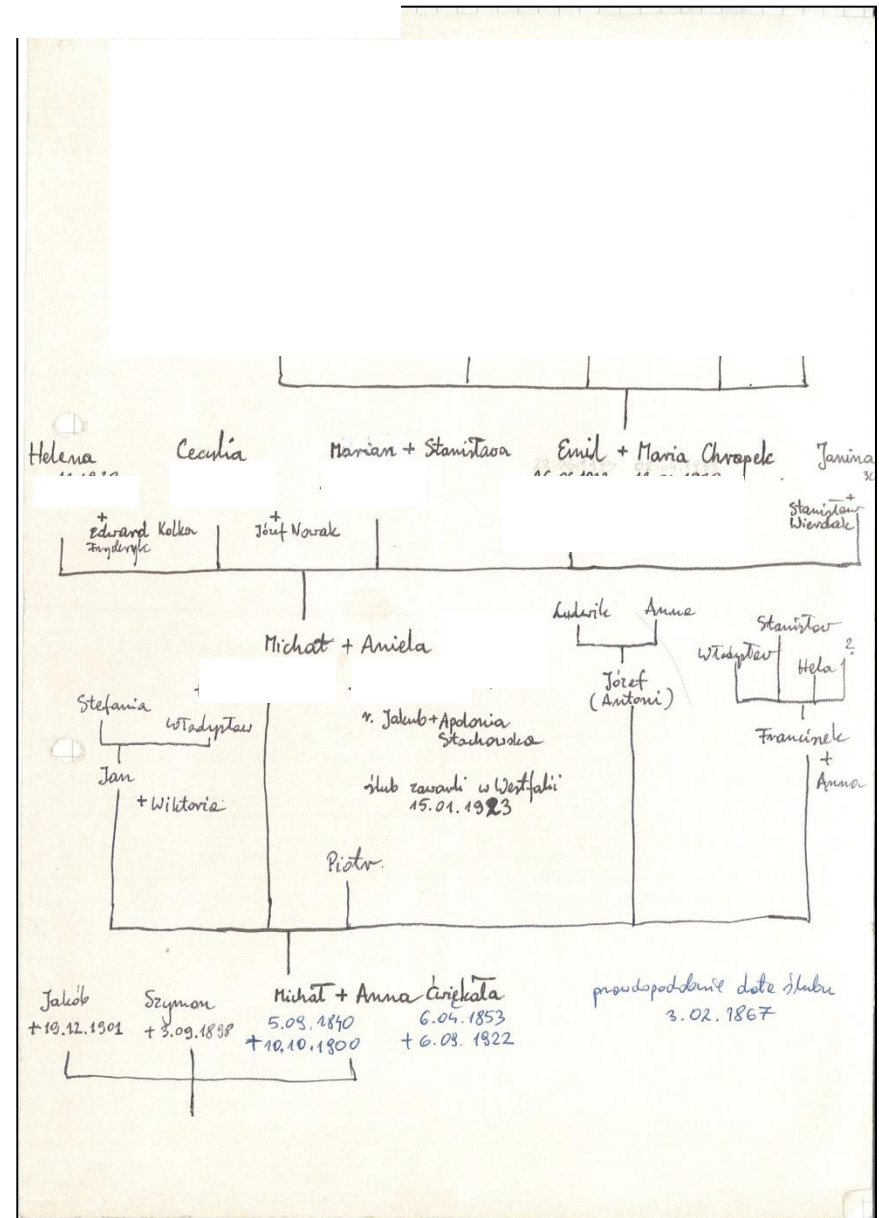 Helena Cecylia Marian + Stanisława Emil + Maria Chrapek Janina
+ Edward Kolka
Fryderyk
+ Józef Nowak
Stanisław +
Wierdak
Michał + Aniela
Ludwik Anna
Józef
(Antoni)
Stanisław
Władysław
Hela ?
Franciszek
+
Anna
Stefania
Władysław
Jan
+ Wiktoria
r. Jakub + Apolonia
Stachowska
ślub zawarli w Westfalii
15.01.1923
Piotr.
Jakób
+ 19.12.1901
Szymon
+ 3.09.1898
Michał + Anna Ćwiękała
5.09.1840 6.04.1853
+ 10.10.1900 + 6.09.1922
prawdopodobnie data ślubu
3.02.1867